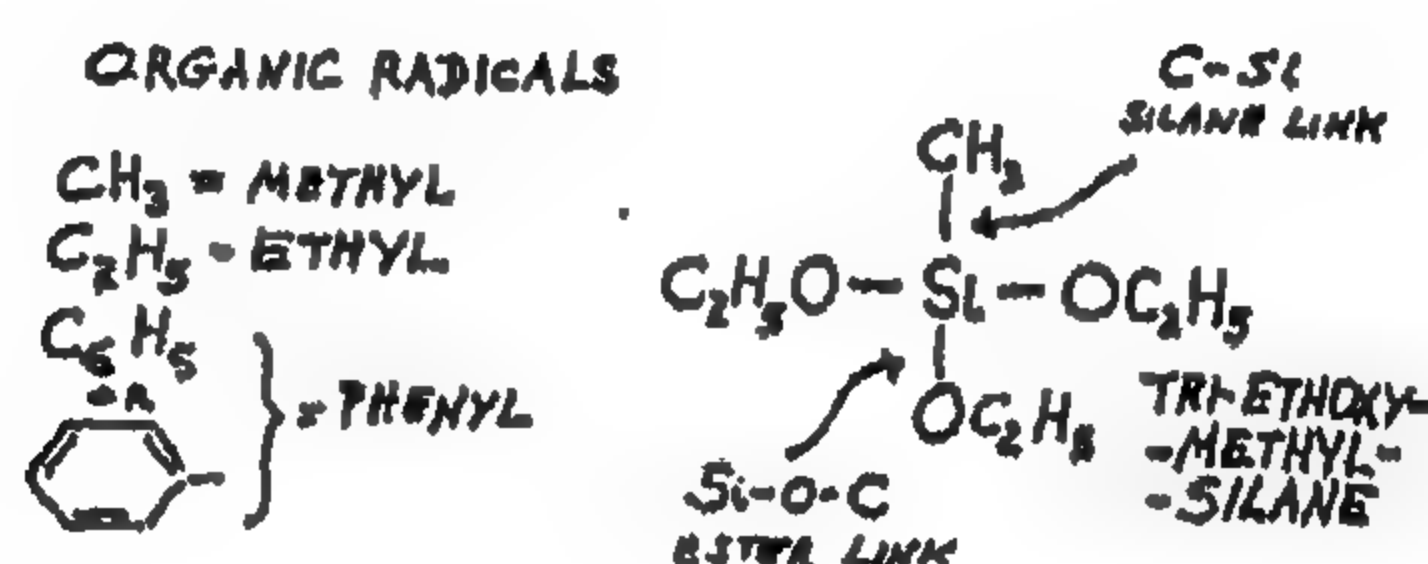 ORGANIC RADICALS
CH₃ = METHYL
C₂H₅ - ETHYL
C₆H₅
OR
= PHENYL
C-Si
SILANE LINK
CH₃
C₂H₅O-Si-OC₂H₅
OC₂H₅
Si-O-C
ESTER LINK
TRI-ETHOXY-
-METHYL-
-SILANE